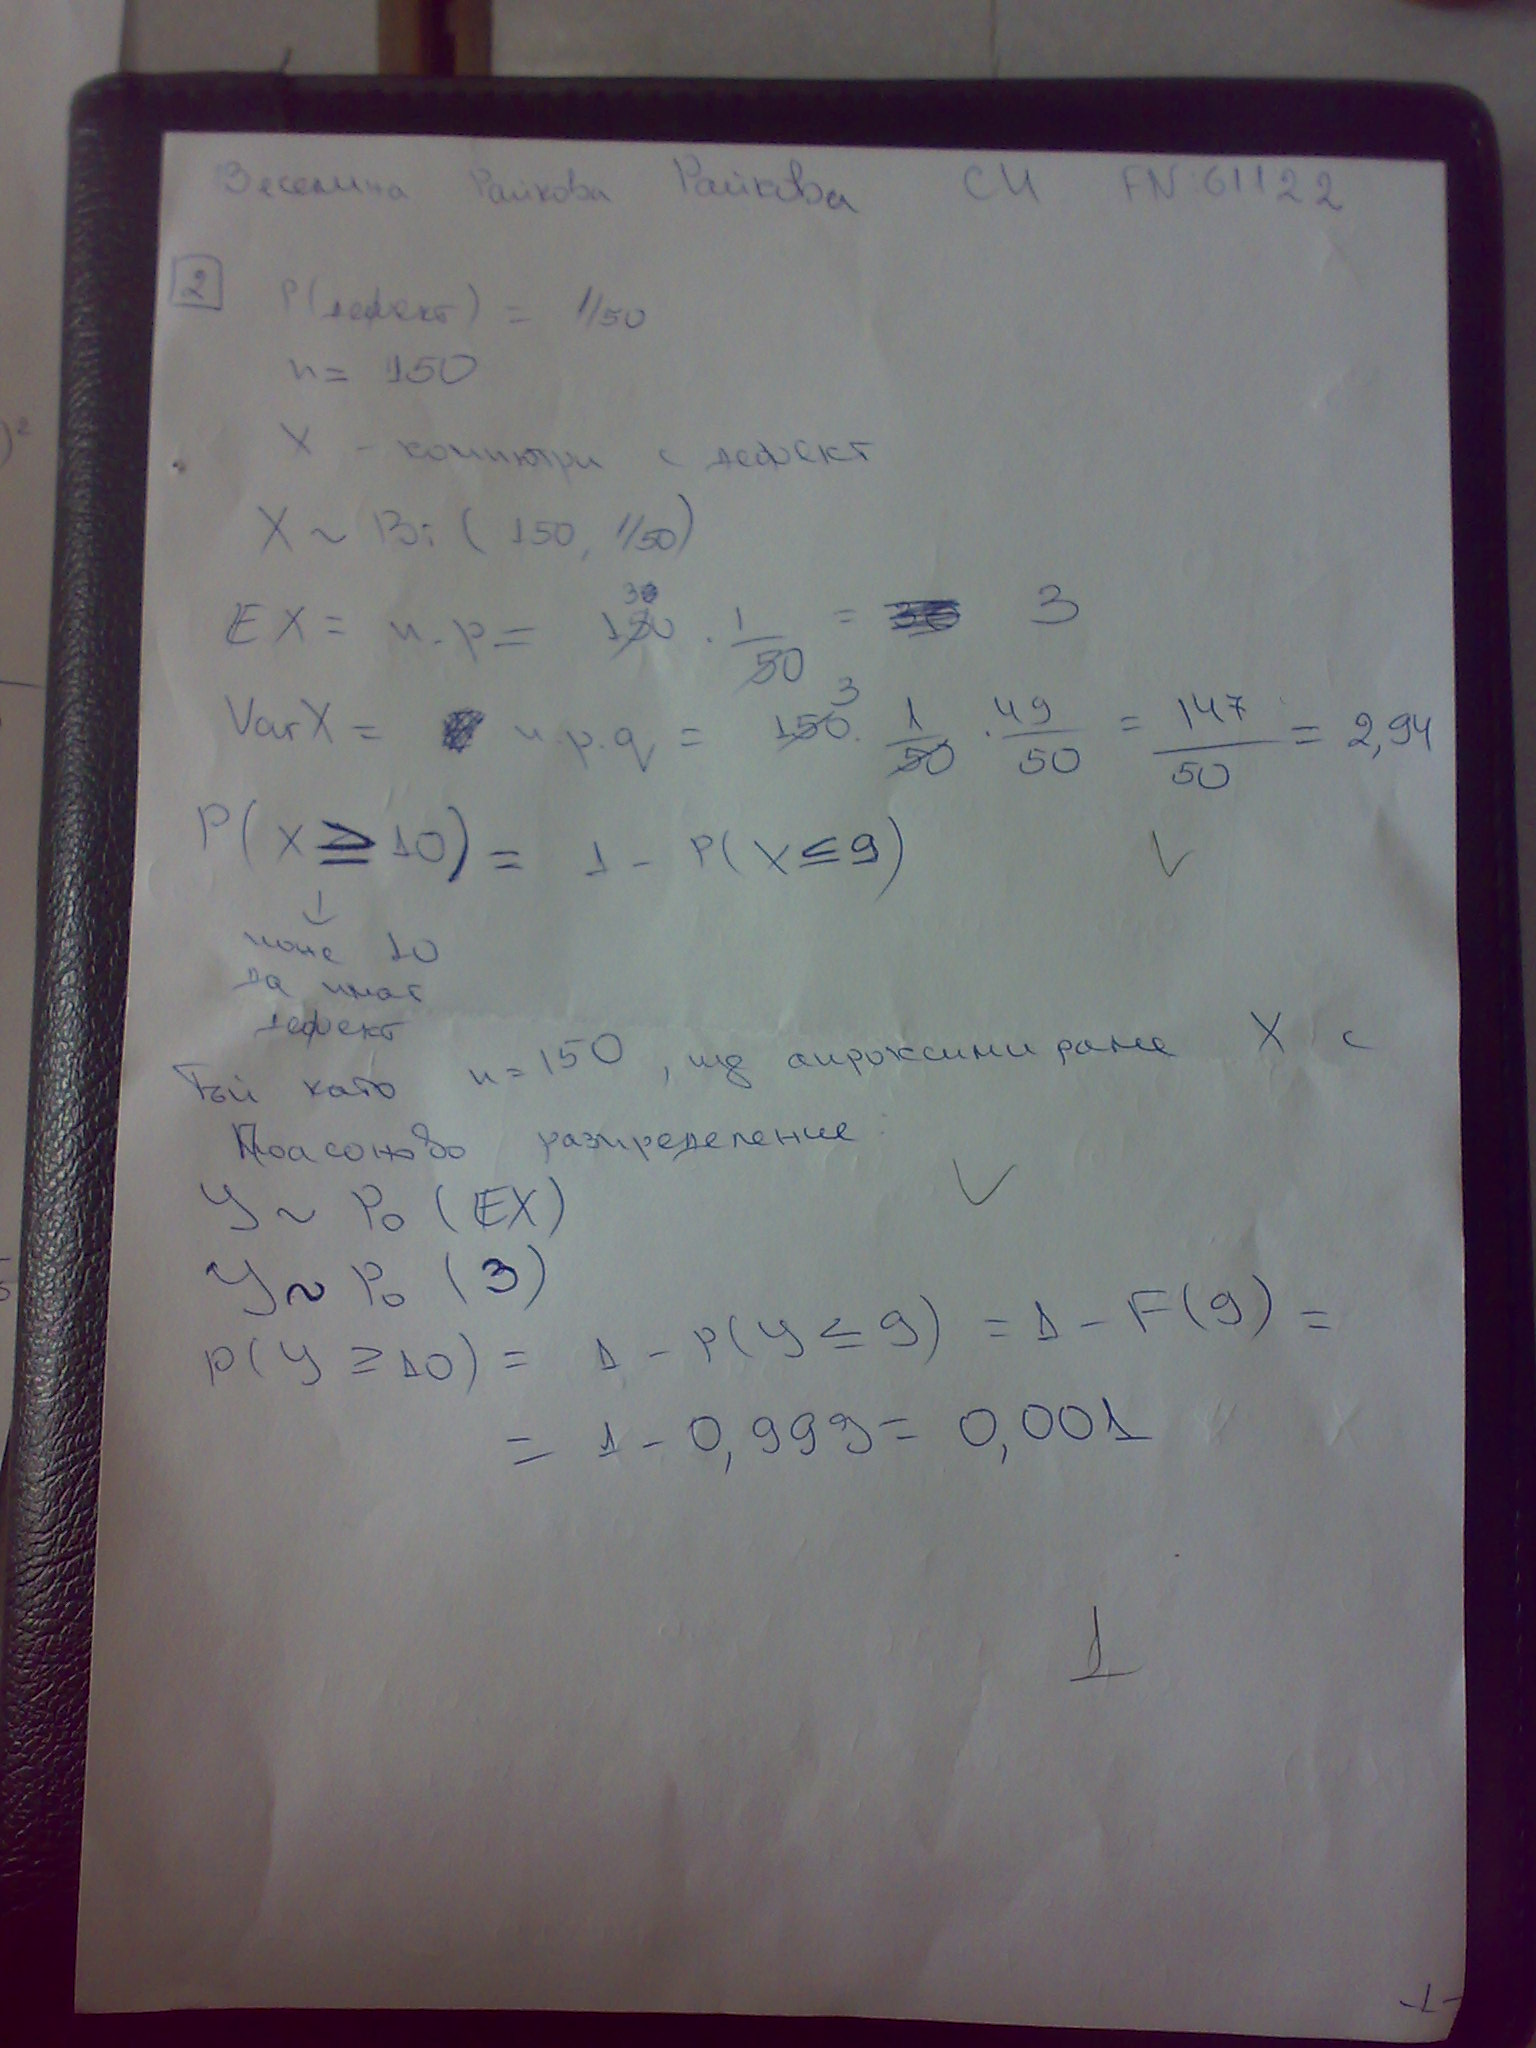 Веселина Райкова Райкова СИ FN:61122
2 P(дефект) = 1/50
n = 150
X - компютри с дефект
X ~ Bi ( 150, 1/50)
EX = n.p = 150 . 1/50 = 3
VarX = n.p.q = 150 . 1/50 . 49/50 = 147/50 = 2,94
P( X ≥ 10) = 1 - P( X ≤ 9)
↓
поне 10
да имат
дефект
Тъй като n = 150, ще апроксимираме X с
Поасоново разпределение
Y ~ Po (EX)
Y ~ Po (3)
P(Y ≥ 10) = 1 - P(Y ≤ 9) = 1 - F(9) =
= 1 - 0,999 = 0,001
1